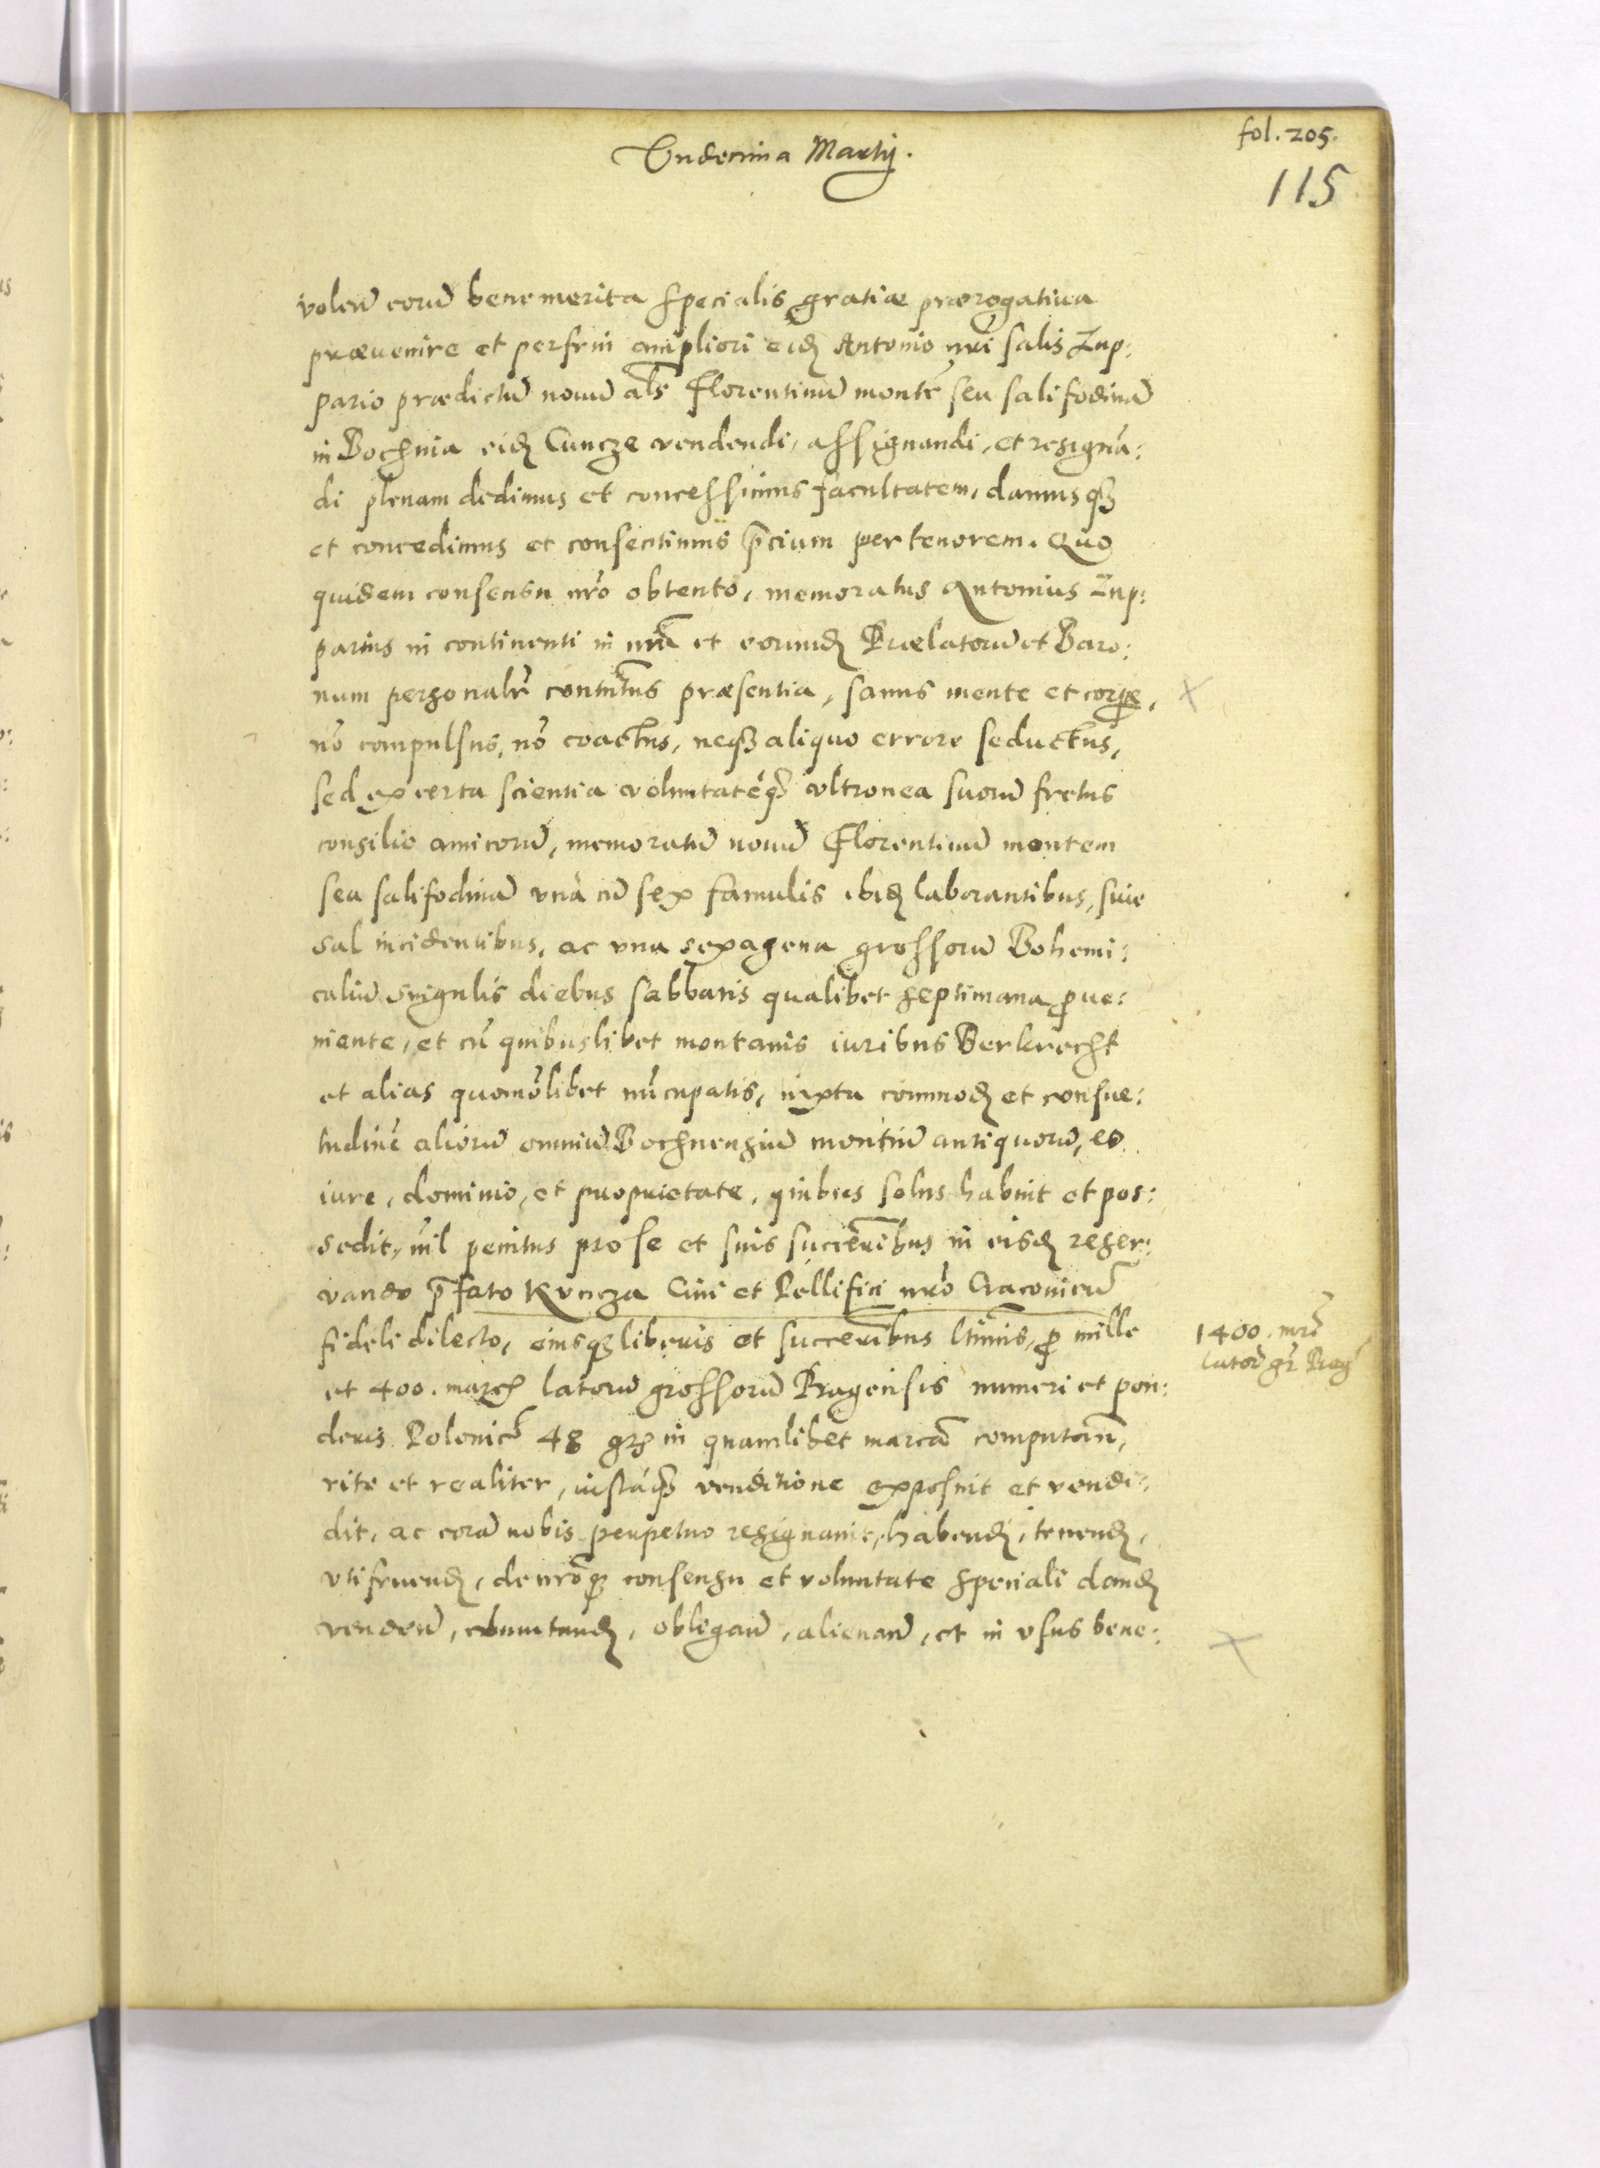 Undecima Martij.
fol. 205.
115
volen̄ eorū benemerita specialis gratiae praerogatiua
praeuenire et perfrui ampliori eidȝ Antonio nrī salis Zup:
pario praedictū nouū als̄ Florentinū montē seu salifodinā
in Bochnia eidȝ Cuncze vendendi, assignandi, et resignā:
di plenam dedimus et concessimus facultatem, damusqȝ
et concedimus et consentimus p̄cium per tenorem. Quo
quidem consensu nrō obtento, memoratus Antonius Zup:
parius in continenti in nrā et eorundȝ Praelatorū et Baro:
num personalr̄ constitutus praesentia, sanus mente et corpe,
nō compulsus, nō coactus, neqȝ aliquo errore seductus,
sed ex certa scientia voluntatéqȝ vltronea suorū fretus
consilio amicorū, memoratū nouū Florentinū montem
seu salifodinā vnà cū sex famulis ibidȝ laborantibus, siue
sal incidentibus, ac vna sexagena grossorū Bohemi:
caliū singulis diebus sabbatis qualibet septimana ꝓue:
niente, et cū quibuslibet montanis iuribus Berkrecht
et alias quomōlibet nūcupatis, iuxta commodȝ et consue:
tudinē aliorū omniū Bochnensiū montiū antiquorū, eo
iure, dominio, et proprietate, quibus solus habuit et pos:
sedit, nīl penitus pro se et suis succēribus in eisdȝ reser:
vando p̄fato Kuncza Ciui et Pellifici nrō Cracouien̄
fideli dilecto, eiusqȝ liberis et succēribus ltīmis, ꝓ mille
et 400. marcȝ latorū grossorū Pragensis numeri et pon:
deris Polonic̄ 48 grȝ in quamlibet marcā computan̄,
rite et realiter, iustáqȝ venditione exposuit et vendi:
dit, ac corā nobis perpetuo resignauit, habendȝ, tenendȝ,
vtifruendȝ, de nrōqȝ consensu et voluntate speciali dandȝ
venden̄, obmutandȝ, obligan̄, alienan̄, et in vsus bene:
1400. mrc̄
lator̄ gr̄ Praḡ